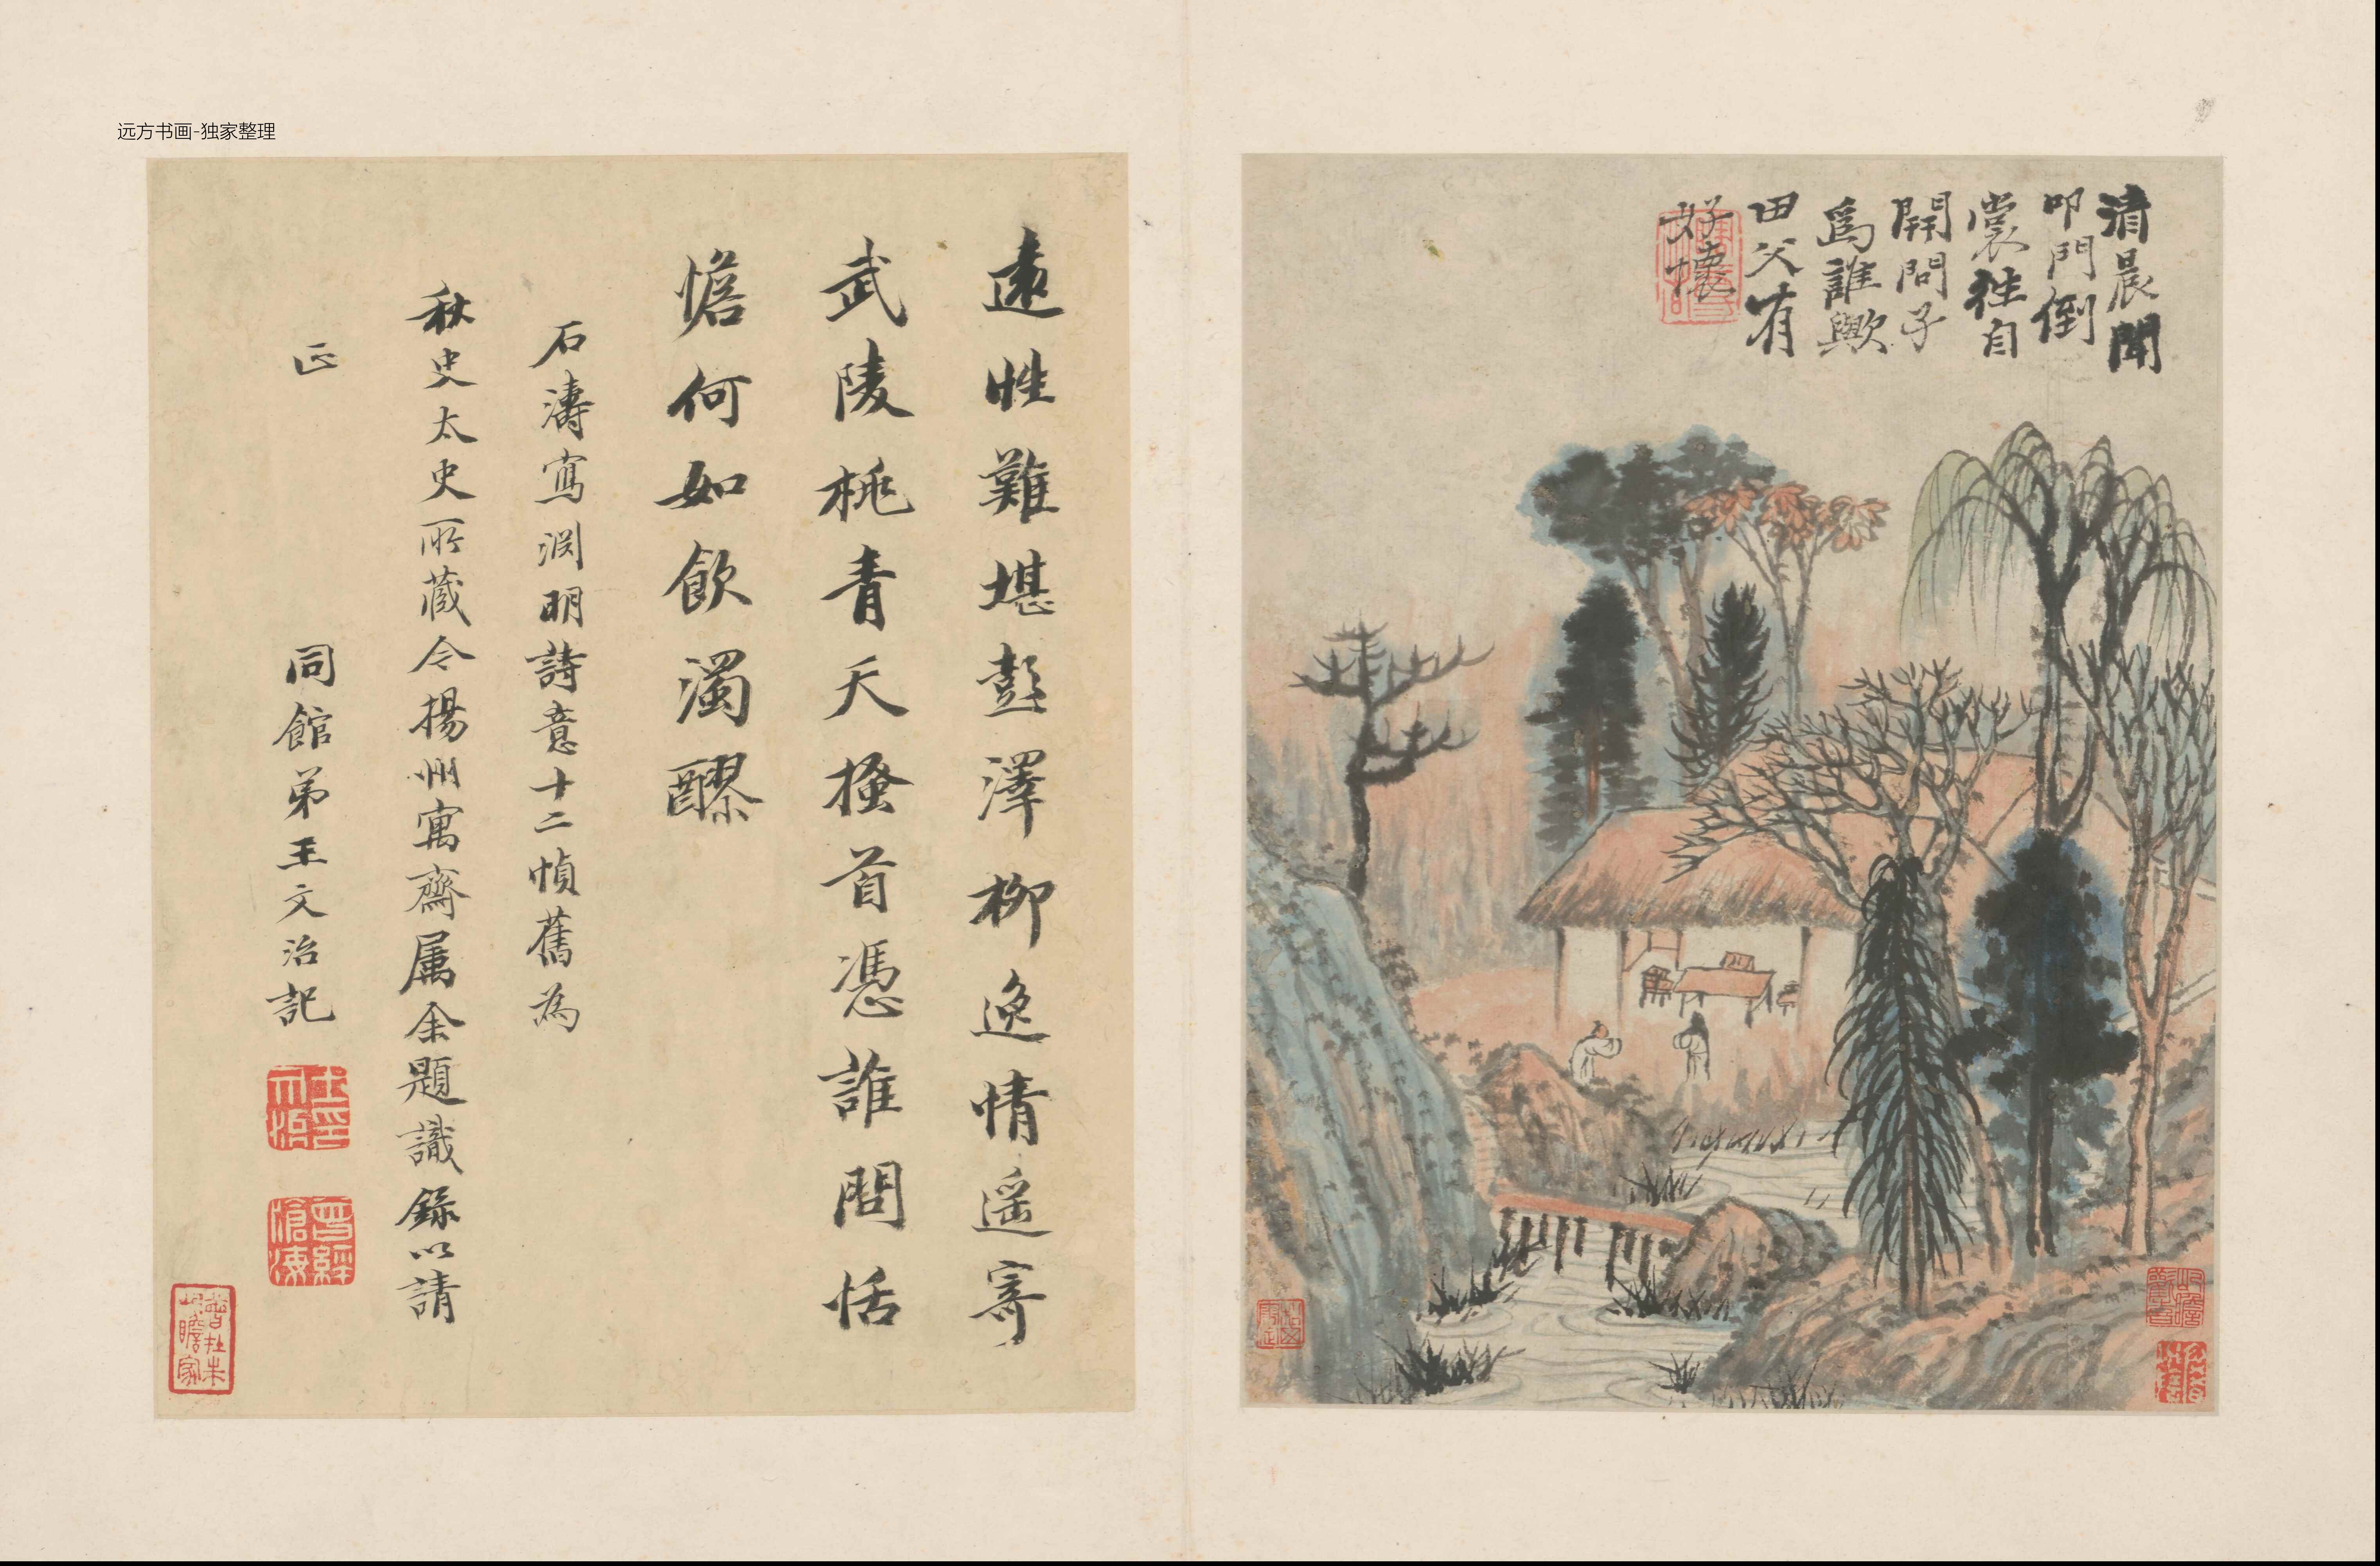 远方书画-独家整理
清晨聞
叩門倒
裳徃自
開問子
爲誰歟
田父有
好懷
遠性難堪彭澤柳逸情遥寄
武陵桃青天搔首憑誰問恬
憺何如飲濁醪
石濤寫渊明詩意十二幀舊為
秋史太史所蔵今揚州寓齋属余題識錄以請
正 同館弟王文治記
王印文治
曾經滄海
曾在朱屺瞻家